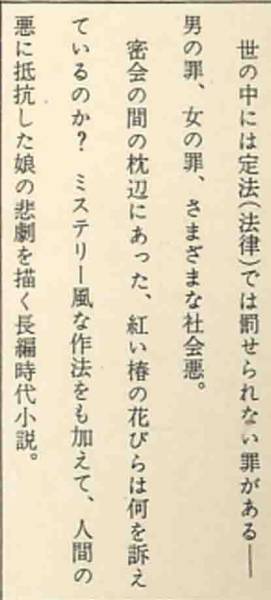 世の中には定法(法律)では罰せられない罪がある――
男の罪、女の罪、さまざまな社会悪。
密会の間の枕辺にあった、紅い椿の花びらは何を訴え
ているのか? ミステリー風な作法をも加えて、人間の
悪に抵抗した娘の悲劇を描く長編時代小説。